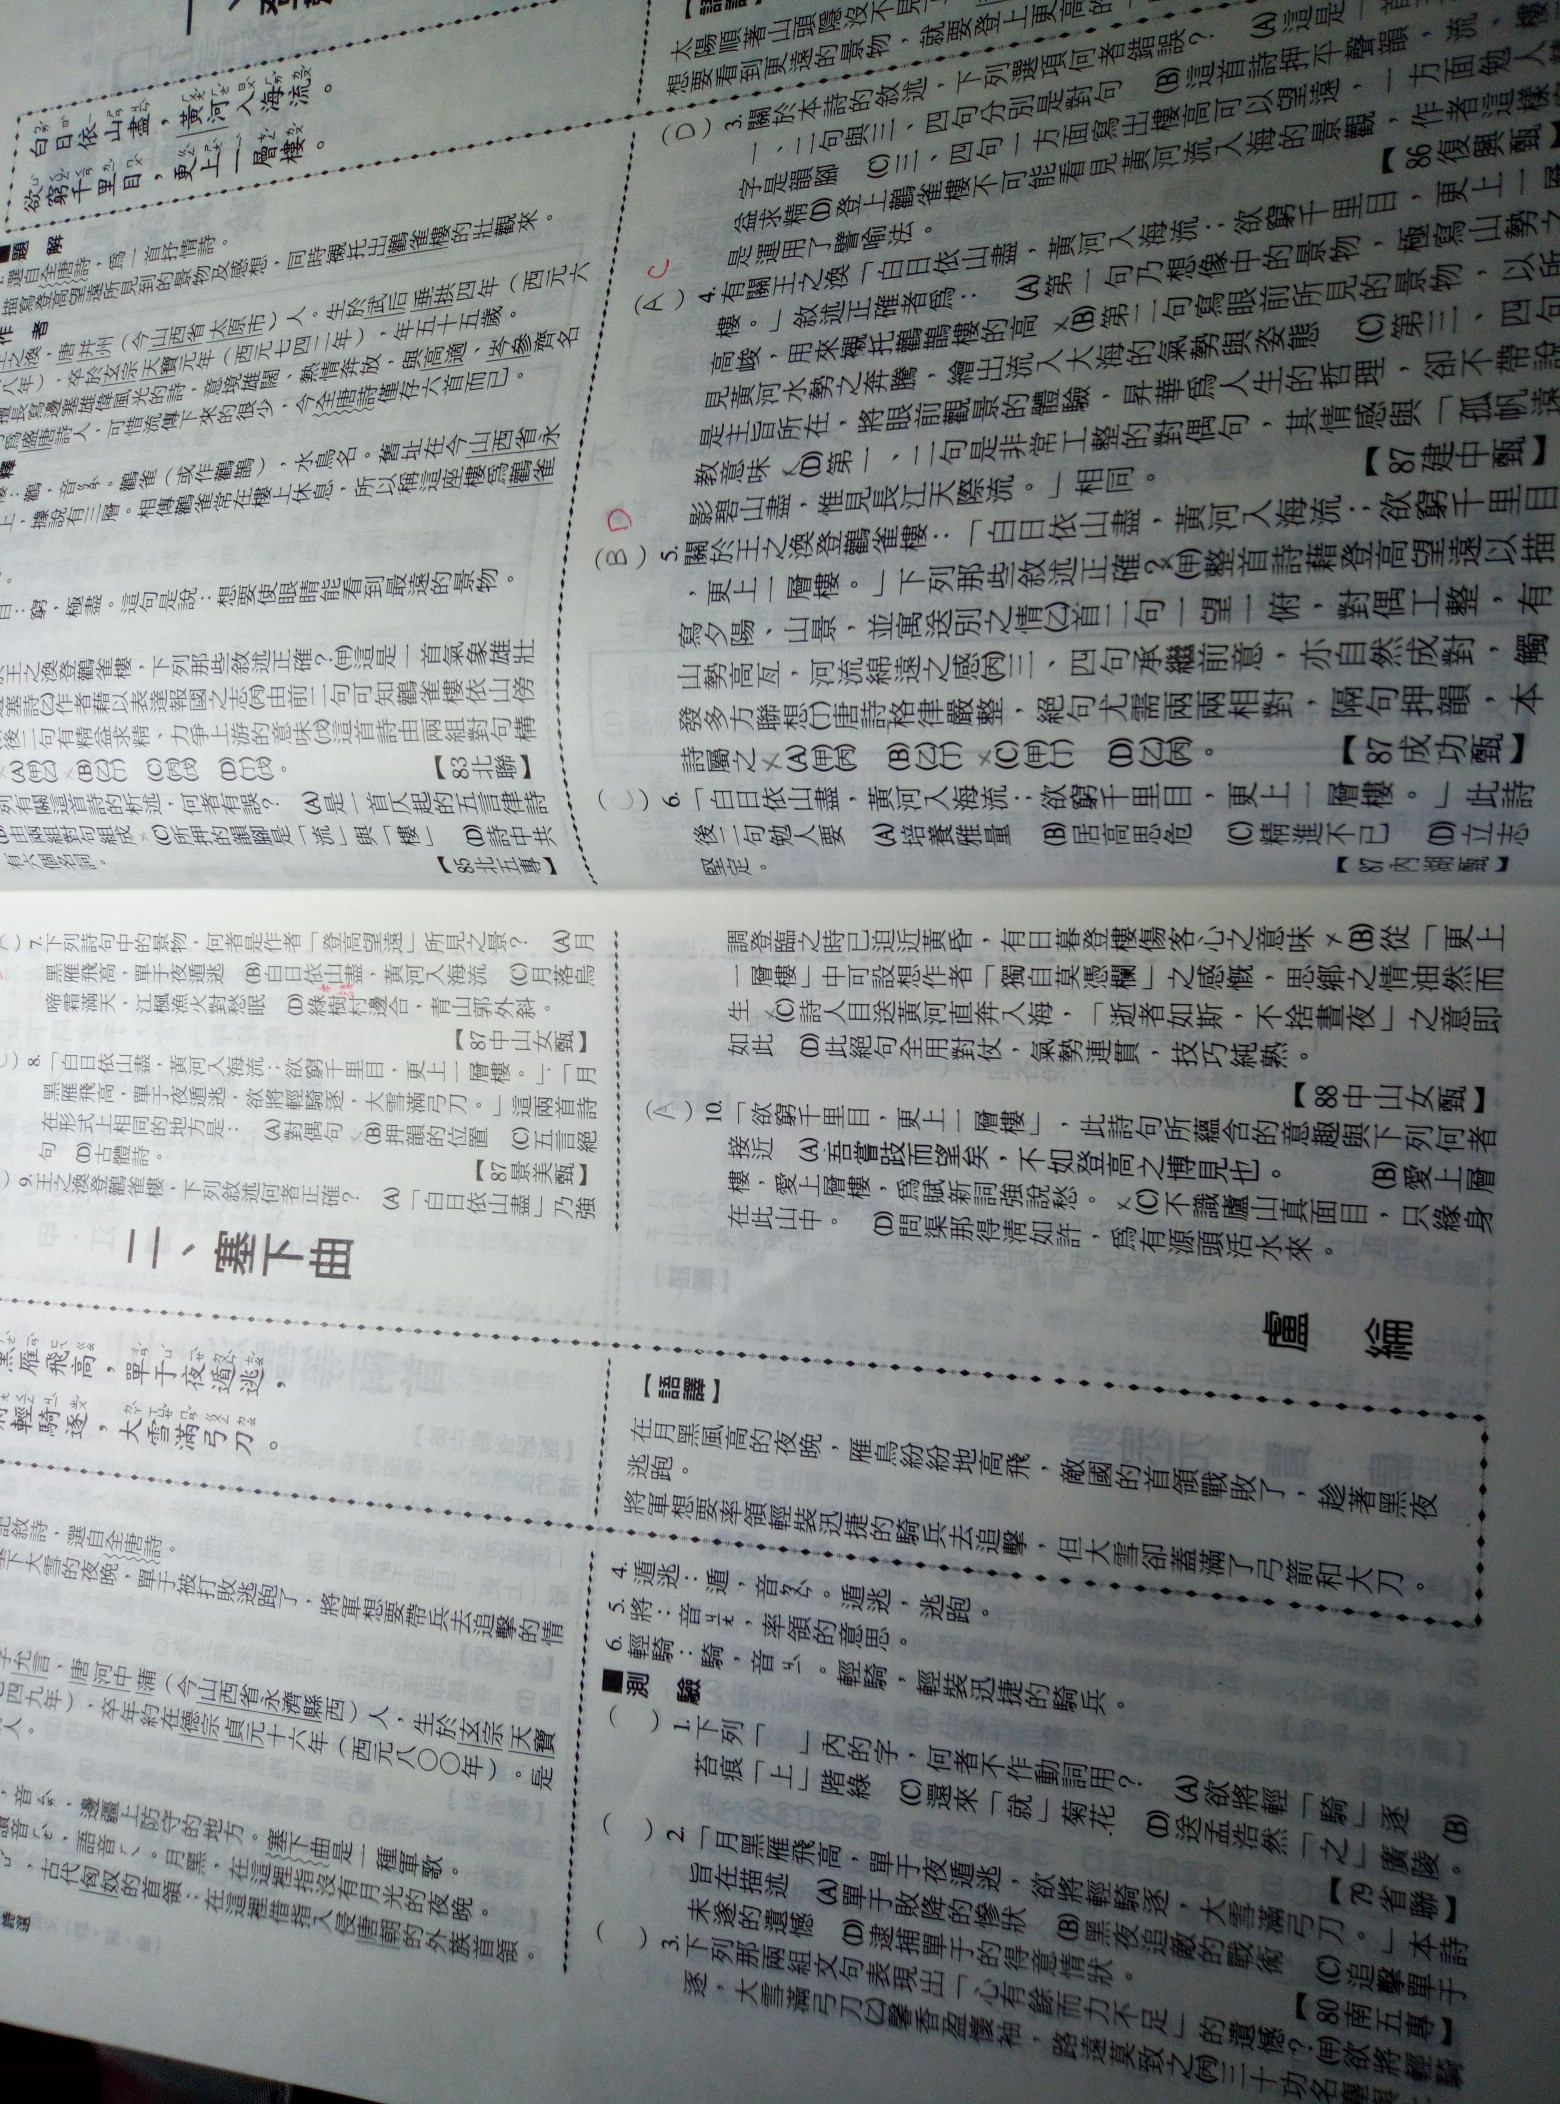 白日依山盡，黃河入海流。
欲窮千里目，更上一層樓。
題解
選自全唐詩，為一首抒情詩。
描寫登高望遠所見到的景物及感想，同時襯托出鸛雀樓的壯觀來。
作者
王之渙，唐并州（今山西省太原市）人。生於武后垂拱四年（西元六
八八年），卒於玄宗天寶元年（西元七四二年），年五十五歲。
擅長寫邊塞雄偉風光的詩，意境雄闊、熱情奔放，與高適、岑參齊名
為盛唐詩人，可惜流傳下來的很少，今全唐詩僅存六首而已。
鸛，音ㄍㄨㄢˋ。鸛雀（或作鸛鵲），水鳥名。舊址在今山西省永
上，據說有三層。相傳鸛雀常在樓上休息，所以稱這座樓為鸛雀
目：窮，極盡。這句是說：想要使眼睛能看到最遠的景物。
王之渙登鸛雀樓，下列那些敘述正確？(甲)這是一首氣象雄壯
塞詩(乙)作者藉以表達報國之志(丙)由前二句可知鸛雀樓依山傍
後二句有精益求精、力爭上游的意味(戊)這首詩由兩組對句構
(A)(甲)(乙) (B)(乙)(丁) (C)(丙)(戊) (D)(丁)(戊)。【83北聯】
列有關這首詩的析述，何者有誤？ (A)是一首仄起的五言律詩
(B)由兩組對句組成 (C)所押的韻腳是「流」與「樓」 (D)詩中共
有六個名詞。【85北五專】
太陽順著山頭隱沒不見了
想要看到更遠的景物，就要登上更高的一
(D) 3.關於本詩的敘述，下列選項何者錯誤？ (A)這是一首
一、二句與三、四句分別是對句 (B)這首詩押平聲韻，流、樓
字是韻腳 (C)三、四句一方面寫出樓高可以望遠，一方面勉人精
益求精(D)登上鸛雀樓不可能看見黃河流入海的景觀，作者這樣
是運用了譬喻法。【86復興甄】
(A) C 4.有關王之渙「白日依山盡，黃河入海流；欲窮千里目，更上一層
樓。」敘述正確者為： (A)第一句乃想像中的景物，極寫山勢之
高峻，用來襯托鸛鵲樓的高 (B)第二句寫眼前所見的景物，以所
見黃河水勢之奔騰，繪出流入大海的氣勢與姿態 (C)第三、四句
是主旨所在，將眼前觀景的體驗，昇華為人生的哲理，卻不帶說
教意味 (D)第一、二句是非常工整的對偶句，其情感與「孤帆遠
影碧山盡，惟見長江天際流。」相同。【87建中甄】
(B) D 5.關於王之渙登鸛雀樓：「白日依山盡，黃河入海流；欲窮千里目
，更上一層樓。」下列那些敘述正確？(甲)整首詩藉登高望遠以描
寫夕陽、山景，並寓送別之情(乙)首二句一望一俯，對偶工整，有
山勢高亙，河流綿遠之感(丙)三、四句承繼前意，亦自然成對，觸
發多方聯想(丁)唐詩格律嚴整，絕句尤需兩兩相對，隔句押韻，本
詩屬之 (A)(甲)(丙) (B)(乙)(丁) (C)(甲)(丁) (D)(乙)(丙)。【87成功甄】
(C) 6.「白日依山盡，黃河入海流；欲窮千里目，更上一層樓。」此詩
後二句勉人要 (A)培養雅量 (B)居高思危 (C)精進不已 (D)立志
堅定。【87內湖甄】
7.下列詩句中的景物，何者是作者「登高望遠」所見之景？ (A)月
黑雁飛高，單于夜遁逃 (B)白日依山盡，黃河入海流 (C)月落烏
啼霜滿天，江楓漁火對愁眠 (D)綠樹村邊合，青山郭外斜。
【87中山女甄】
8.「白日依山盡，黃河入海流；欲窮千里目，更上一層樓。」、「月
黑雁飛高，單于夜遁逃，欲將輕騎逐，大雪滿弓刀。」這兩首詩
在形式上相同的地方是： (A)對偶句 (B)押韻的位置 (C)五言絕
句 (D)古體詩。【87景美甄】
9.王之渙登鸛雀樓，下列敘述何者正確？ (A)「白日依山盡」乃強
調登臨之時已迫近黃昏，有日暮登樓傷客心之意味 (B)從「更上
一層樓」中可設想作者「獨自莫憑欄」之感慨，思鄉之情油然而
生 (C)詩人目送黃河直奔入海，「逝者如斯，不捨晝夜」之意即
如此 (D)此絕句全用對仗，氣勢連貫，技巧純熟。
【88中山女甄】
(A) 10.「欲窮千里目，更上一層樓」，此詩句所蘊含的意趣與下列何者
接近 (A)吾嘗跂而望矣，不如登高之博見也。 (B)愛上層
樓，愛上層樓，為賦新詞強說愁。 (C)不識廬山真面目，只緣身
在此山中。 (D)問渠那得清如許，為有源頭活水來。
二、塞下曲
盧綸
黑雁飛高，單于夜遁逃，
將輕騎逐，大雪滿弓刀。
【語譯】
在月黑風高的夜晚，雁鳥紛紛地高飛，敵國的首領戰敗了，趁著黑夜
逃跑。
將軍想要率領輕裝迅捷的騎兵去追擊，但大雪卻蓋滿了弓箭和大刀。
記敘詩，選自全唐詩。
下大雪的夜晚，單于被打敗逃跑了，將軍想要帶兵去追擊的情
字允言，唐河中蒲（今山西省永濟縣西）人，生於玄宗天寶
七四九年），卒年約在德宗貞元十六年（西元八〇〇年）。是
人。
，音ㄙㄞˋ，邊疆上防守的地方。塞下曲是一種軍歌。
，語音ㄏㄟ。月黑，在這裡指沒有月光的夜晚。
，古代匈奴的首領：在這裡借指入侵唐朝的外族首領。
4.遁逃：遁，音ㄉㄨㄣˋ。遁逃，逃跑。
5.將：音ㄐㄧㄤ，率領的意思。
6.輕騎：騎，音ㄐㄧˋ。輕騎，輕裝迅捷的騎兵。
測驗
( ) 1.下列「 」內的字，何者不作動詞用？ (A)欲將輕「騎」逐 (B)
苔痕「上」階綠 (C)還來「就」菊花 (D)送孟浩然「之」廣陵。
【79省聯】
( ) 2.「月黑雁飛高，單于夜遁逃，欲將輕騎逐，大雪滿弓刀。」本詩
旨在描述 (A)單于敗降的慘狀 (B)黑夜追敵的戰術 (C)追擊單于
未遂的遺憾 (D)逮捕單于的得意情狀。【80南五專】
( ) 3.下列那兩組文句表現出「心有餘而力不足」的遺憾？(甲)欲將輕騎
逐，大雪滿弓刀(乙)馨香盈懷袖，路遠莫致之(丙)三十功名塵與